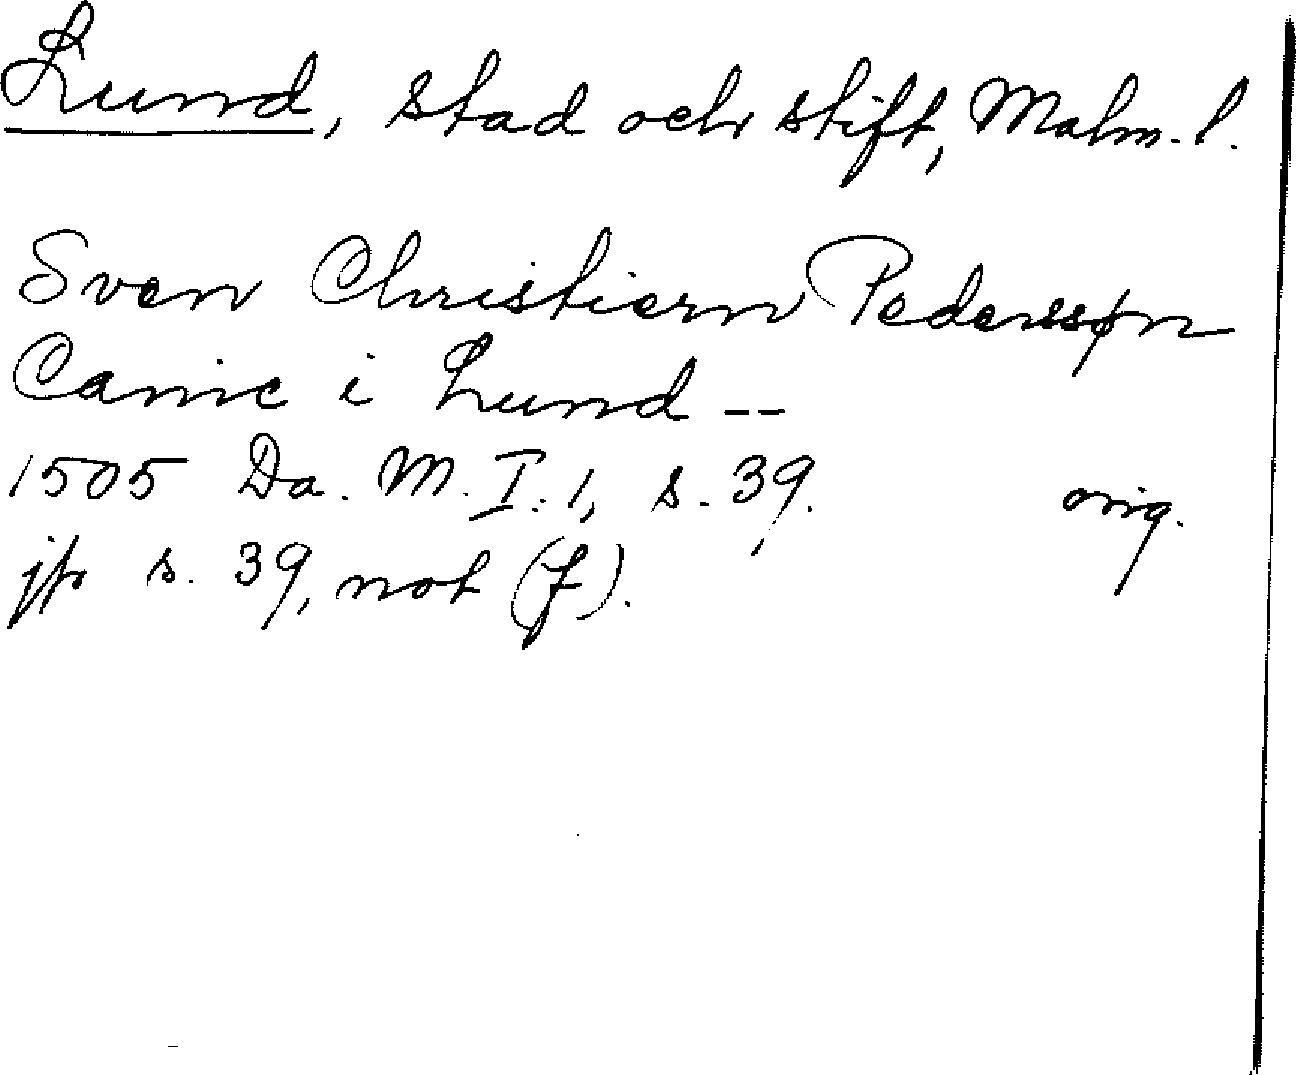 Lund, stad och stift, Malm. l.
Sven Christiern Pederssøn
Canic i Lund --
1505 Da. M. I: 1, s. 39. orig.
jfr s. 39, not (f).